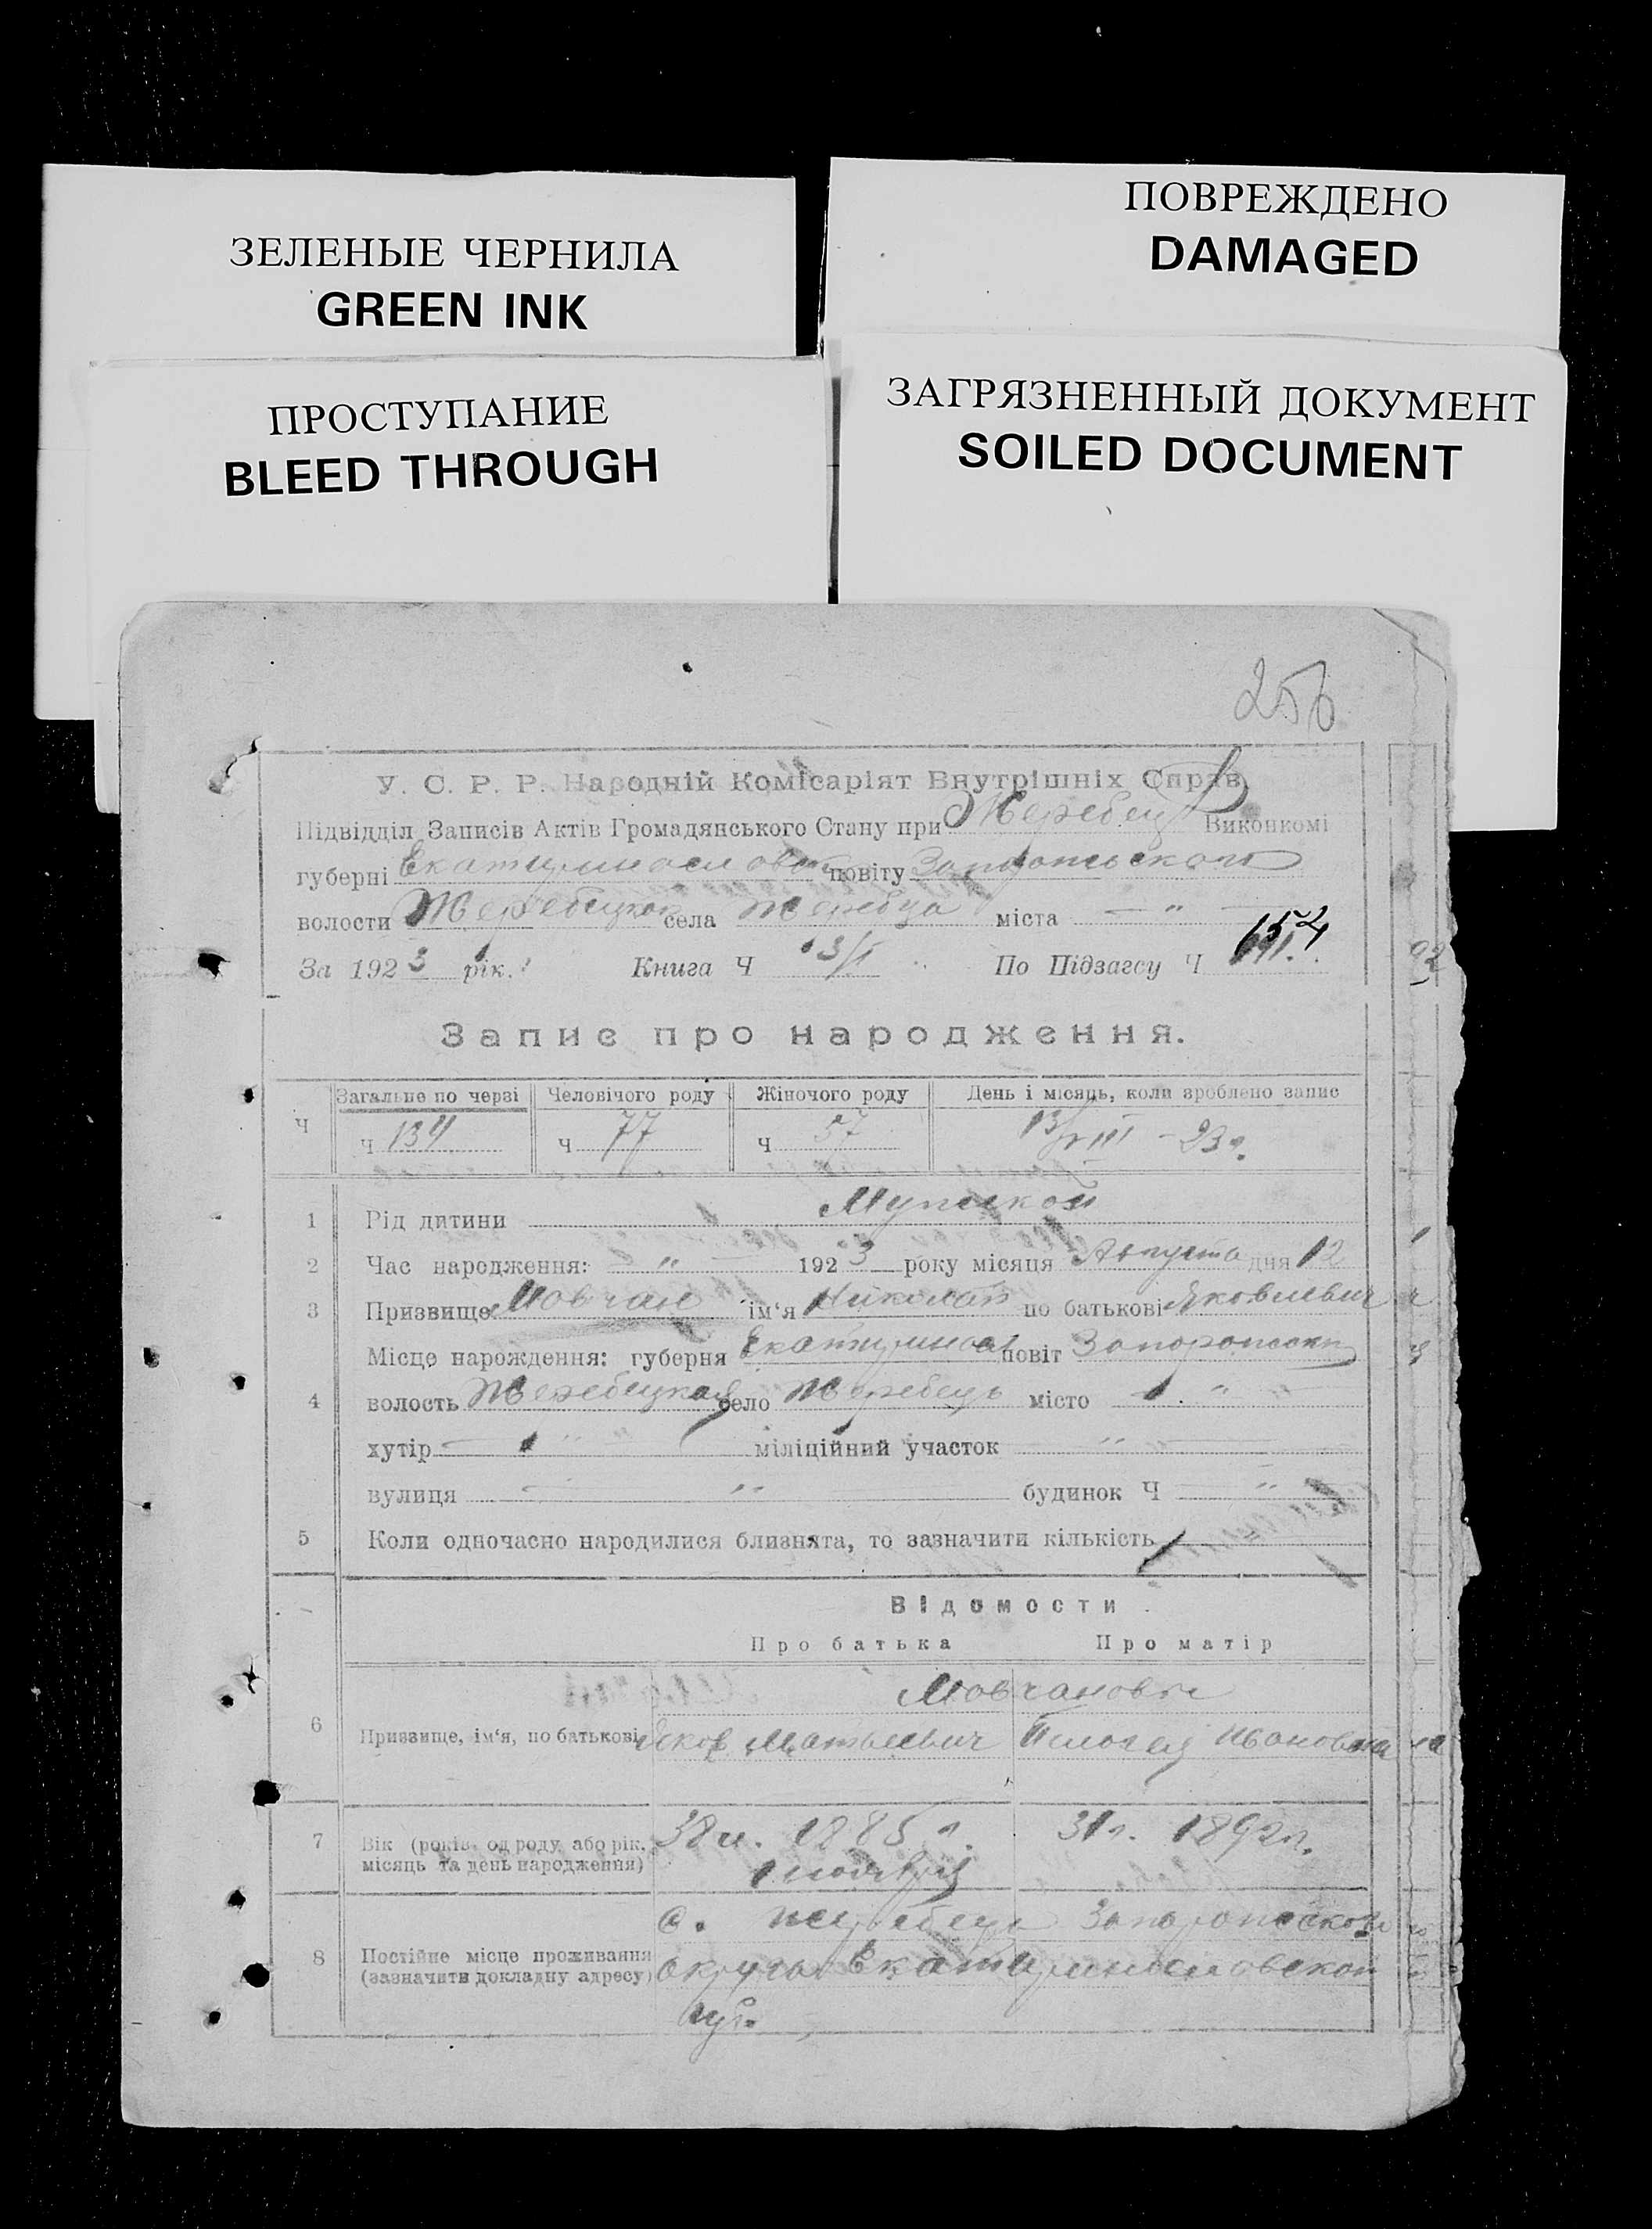 ЗЕЛЕНЫЕ ЧЕРНИЛА
GREEN INK
ПОВРЕЖДЕНО
DAMAGED
ПРОСТУПАНИЕ
BLEED THROUGH
ЗАГРЯЗНЕННЫЙ ДОКУМЕНТ
SOILED DOCUMENT
256
У. С. Р. Р. Народній Комісаріят Внутрішніх Справ
Підвідділ Записів Актів Громадянського Стану при Жеребец Виконкомі
губерні Екатеринослово повіту
волости Жеребецкой села Жеребца міста — " —
За 1923 рік. Книга Ч По Підзагсу Ч
Запис про народження.
Загальне по черзі Человічого роду Жіночого роду День і місяць, коли зроблено запис
Ч Ч 134 Ч 77 Ч 57 13/VIII - 23 г.
1 Рід дитини Мужской
2 Час народження: — " — 1923 року місяця Августа дня 12
3 Призвище Мовчан ім‘я Николай по батькові Яковлевич
Місце нарождення: губерня Екатеринос повіт Запорожски
4 волость Жеребецкая село Жеребець місто " "
хутір — " " міліційний участок — " —
вулиця — " — будинок Ч — " —
5 Коли одночасно народилися близнята, то зазначити кількість — " —
Відомости
Про батька Про матір
Мовчановы
6 Призвище, ім‘я, по батькові Яков Матвеевич Пелогея Ивановна
7 Вік (років од роду або рік, 38 л. 1885 г. 31 г. 1892 г.
місяць та день народження) 1 ноября
с. Жеребец Запорожского
8 Постійне місце проживання
(зазначити докладну адресу) округа Екатеринославской
губ.